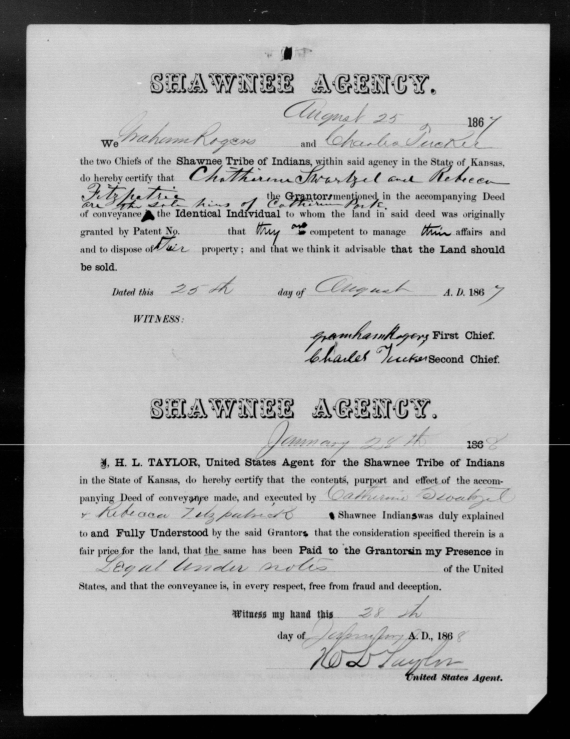 SHAWNEE AGENCY.
August 25 1867
We Graham Rogers and Charles Tucker
the two Chiefs of the Shawnee Tribe of Indians, within said agency in the State of Kansas,
do hereby certify that Chatherine Swartzel and Rebecca
Fitzpatric the Grantors mentioned in the accompanying Deed
are the sole heirs of Catherine
of conveyance the Identical Individual to whom the land in said deed was originally
granted by Patent No. that they are competent to manage their affairs and
and to dispose of their property; and that we think it advisable that the Land should
be sold.
Dated this 25th day of August A. D. 1867
WITNESS:
Graham Rogers First Chief.
Charles Tucker Second Chief.
SHAWNEE AGENCY.
January 28th 1868
I, H. L. TAYLOR, United States Agent for the Shawnee Tribe of Indians
in the State of Kansas, do hereby certify that the contents, purport and effect of the accom-
panying Deed of conveyance made, and executed by Catherine Swatzel
& Rebecca Fitzpatrick Shawnee Indians was duly explained
to and Fully Understood by the said Grantors that the consideration specified therein is a
fair price for the land, that the same has been Paid to the Grantors in my Presence in
Legal Tender notes of the United
States, and that the conveyance is, in every respect, free from fraud and deception.
Witness my hand this 28th
day of January A. D., 1868
H L Taylor
United States Agent.